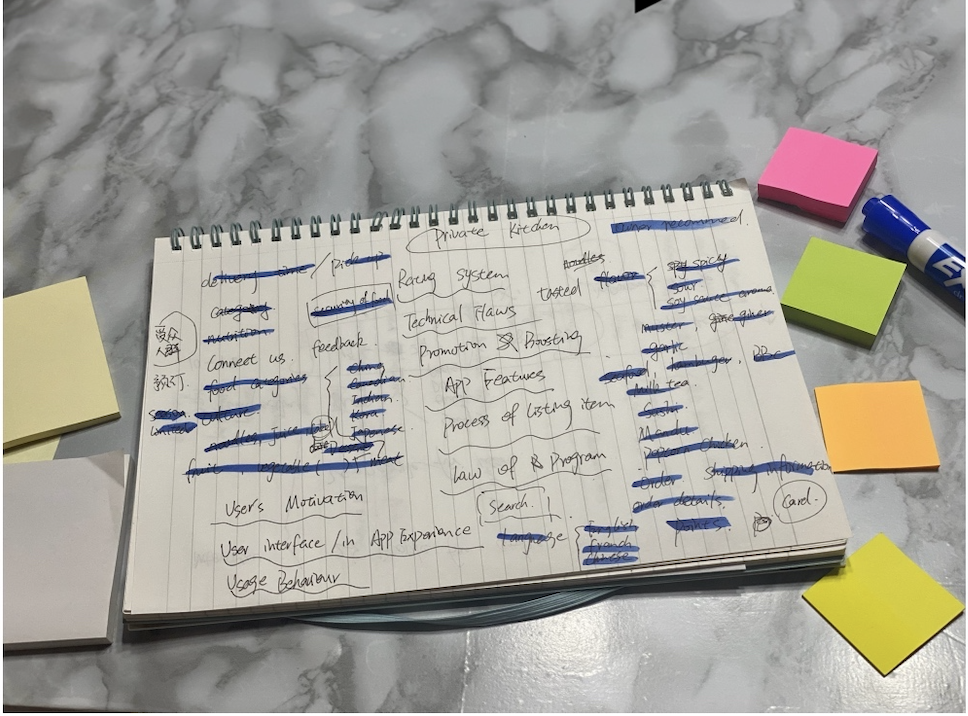 Private Kitchen
owner recommend.
delivery time / pick-up
Rating system
noodles
tasted flavor { spy spicy
sour
soy sauce aroma
category
accuracy of food
Technical Flaws
受众
人群
nutrition
Connect us.
feedback.
Promotion Boosting
garlic
预订.
food categories
China
Canadian
Indian
Kora
Japanese
App Features
seafood, hamburger, BBC
milk tea.
Sushi
season
culture
Process of Listing item
popcorn chicken
noodles, juice
fruit vegetable ( ) meat
Law of Program
order shipping information
User's Motivation
Search.
order details.
Card.
User interface / in App Experience
language { English
French
Chinese
points.
Usage Behaviour